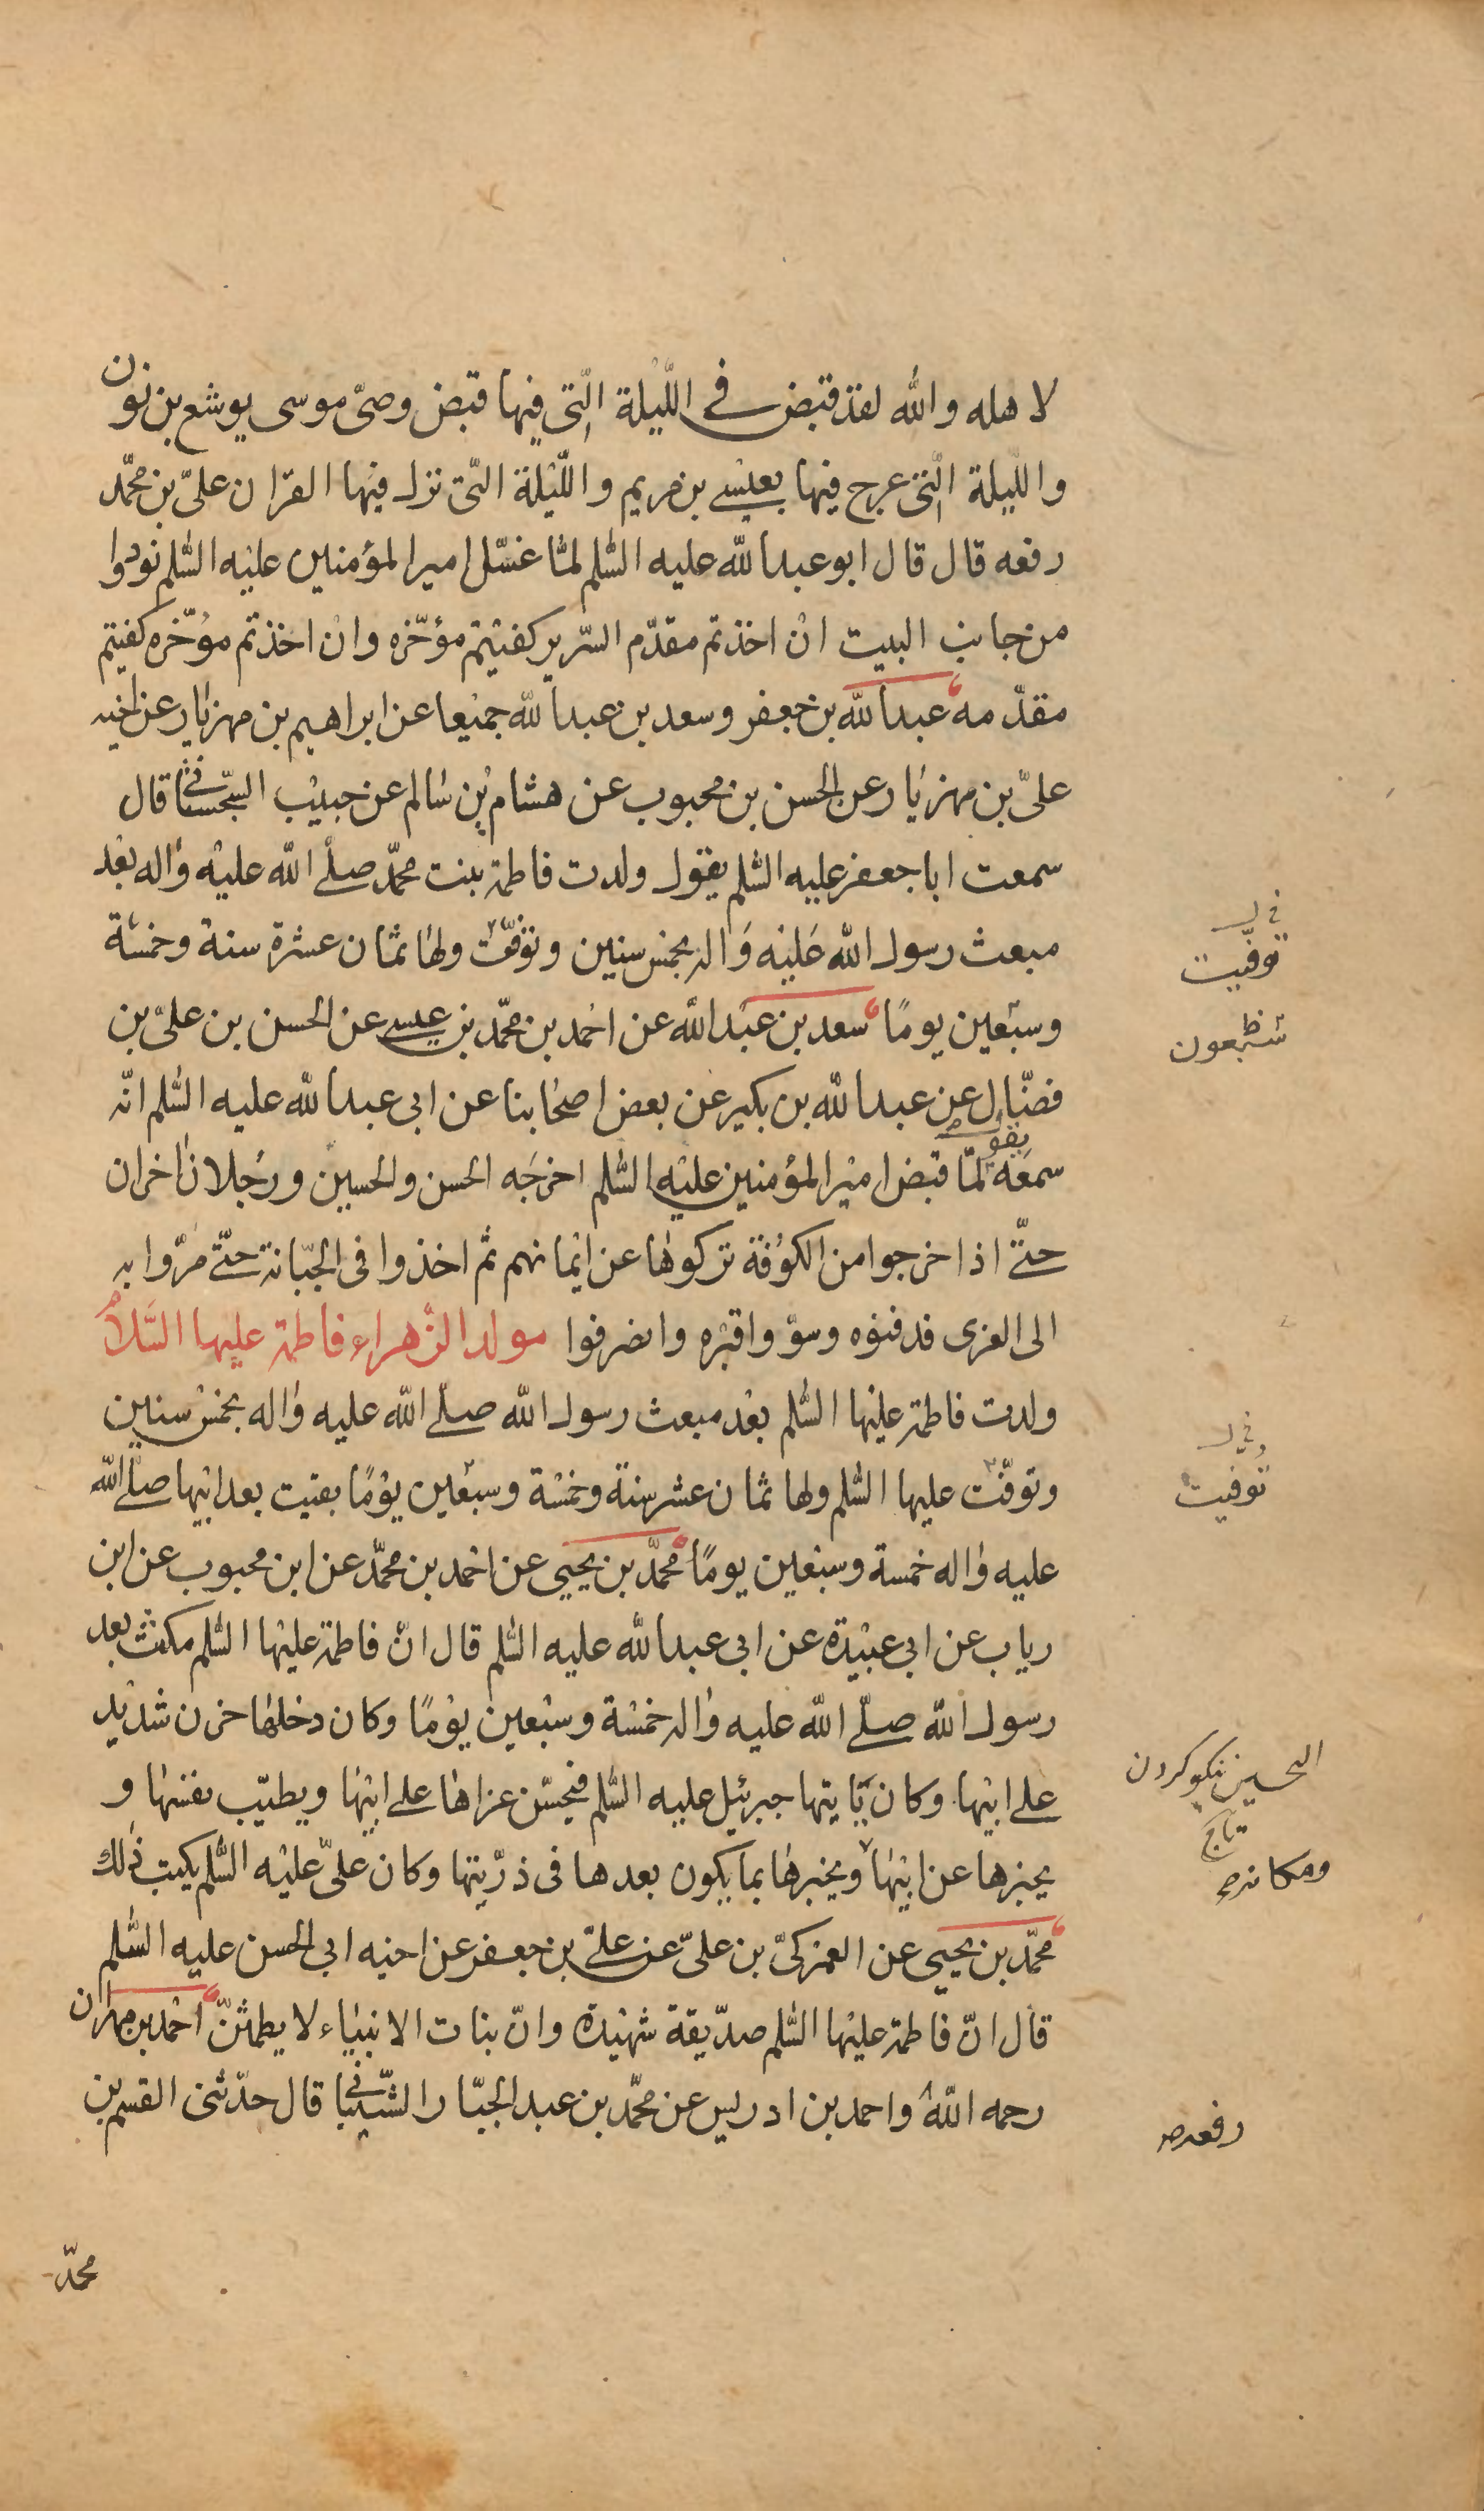 لاهله والله لقد قبض في اللّيلة الّتي فيها قبض وصىّ موسى يوشع بن نون
واللّيلة الّتي عرج فيها بعيسى بن مريم واللّيلة الّتي نزل فيها القران علىّ بن محمّد
رفعه قال قال ابو عبد الله عليه السّلم لمّا غسّل امير المؤمنين عليه السّلم نودوا
من جانب البيت ان اخذتم مقدّم السّرير كفيتم مؤخّره وان اخذتم مؤخّره كفيتم
مقدّمه عبد الله بن جعفر وسعد بن عبد الله جميعا عن ابراهيم بن مهزيار عن اخيه
علىّ بن مهزيار عن الحسن بن محبوب عن هشام بن سالم عن حبيب السّجستانى قال
سمعت ابا جعفر عليه السّلم يقول ولدت فاطمة بنت محمّد صلّى الله عليه واله بعد
مبعث رسول الله عليه واله بخمس سنين وتوفّت ولها ثمان عشرة سنة وخمسة
وسبعين يومًا سعد بن عبد الله عن احمد بن محمّد بن عيسى عن الحسن بن علىّ بن
فضّال عن عبد الله بن بكير عن بعض اصحابنا عن ابى عبد الله عليه السّلم انّه
سمعه يقول لمّا قبض امير المؤمنين عليه السّلم اخرجه الحسن والحسين ورجلان اخران
حتّى اذا خرجوا من الكوفة تركوها عن ايمانهم ثم اخذوا فى الجبّانة حتّى مرّوا به
الى الغرى فدفنوه وسوّوا قبره وانصرفوا مولد الزّهراء فاطمة عليها السّلام
ولدت فاطمة عليها السّلم بعد مبعث رسول الله صلّى الله عليه واله بخمس سنين
وتوفّت عليها السّلم ولها ثمان عشر سنة وخمسة وسبعين يومًا بقيت بعد ابيها صلّى الله
عليه واله خمسة وسبعين يومًا محمّد بن يحيى عن احمد بن محمّد عن ابن محبوب عن ابن
رياب عن ابى عبيدة عن ابى عبد الله عليه السّلم قال انّ فاطمة عليها السّلم مكثت بعد
رسول الله صلّى الله عليه واله خمسة وسبعين يومًا وكان دخلها حزن شديد
على ابيها وكان يأتيها جبرئيل عليه السّلم فيحسّن عزاها على ابيها ويطيّب نفسها و
يخبرها عن ابيها ويخبرها بما يكون بعدها فى ذرّيتها وكان علىّ عليه السّلم يكتب ذلك
محمّد بن يحيى عن العمركىّ بن علىّ عن علىّ بن جعفر عن اخيه ابى الحسن عليه السّلم
قال انّ فاطمة عليها السّلم صدّيقة شهيدة وانّ بنات الانبياء لا يطمثنّ احمد بن مهران
رحمه الله واحمد بن ادريس عن محمّد بن عبد الجبّار الشّيبانى قال حدّثنى القسم بن
محمّد
توفّيت
سبعون
توفيت
التحسين نيكو كردن
تاج
ومكانه
رفعه